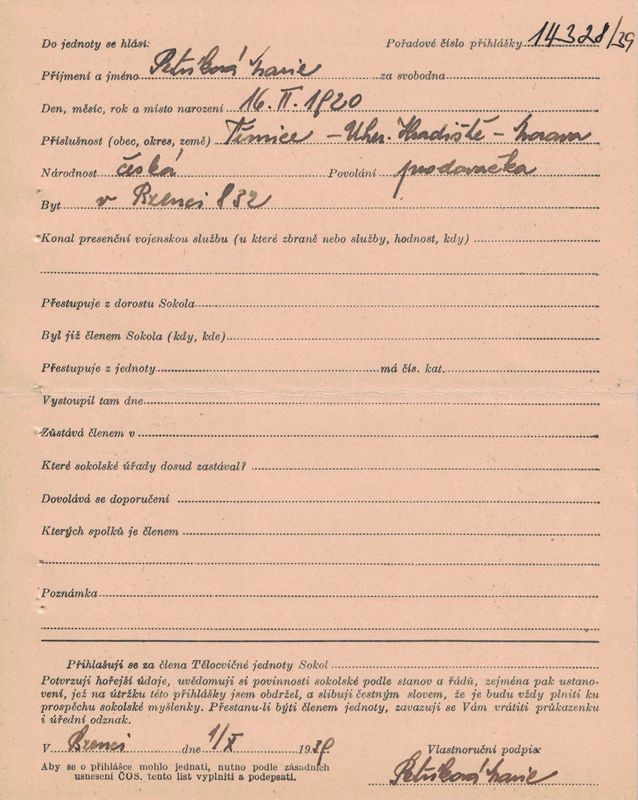 Do jednoty se hlásí: Pořadové číslo přihlášky 14328/39
Příjmení a jméno Petříková Marie za svobodna
Den, měsíc, rok a místo narození 16. II. 1920
Příslušnost (obec, okres, země) Těmice – Uher. Hradiště – Morava
Národnost česká Povolání prodavačka
Byt v Bzenci 832
Konal presenční vojenskou službu (u které zbraně nebo služby, hodnost, kdy)
Přestupuje z dorostu Sokola
Byl již členem Sokola (kdy, kde)
Přestupuje z jednoty má čís. kat.
Vystoupil tam dne
Zůstává členem v
Které sokolské úřady dosud zastával?
Dovolává se doporučení
Kterých spolků je členem
Poznámka
Přihlašuji se za člena Tělocvičné jednoty Sokol
Potvrzuji hořejší údaje, uvědomuji si povinnosti sokolské podle stanov a řádů, zejména pak ustano-
vení, jež na útržku této přihlášky jsem obdržel, a slibuji čestným slovem, že je budu vždy plniti ku
prospěchu sokolské myšlenky. Přestanu-li býti členem jednoty, zavazuji se Vám vrátiti průkazenku
i úřední odznak.
V Bzenci dne 1/X 1939 Vlastnoruční podpis:
Aby se o přihlášce mohlo jednati, nutno podle zásadních
usnesení ČOS. tento list vyplniti a podepsati.
Petříková Marie